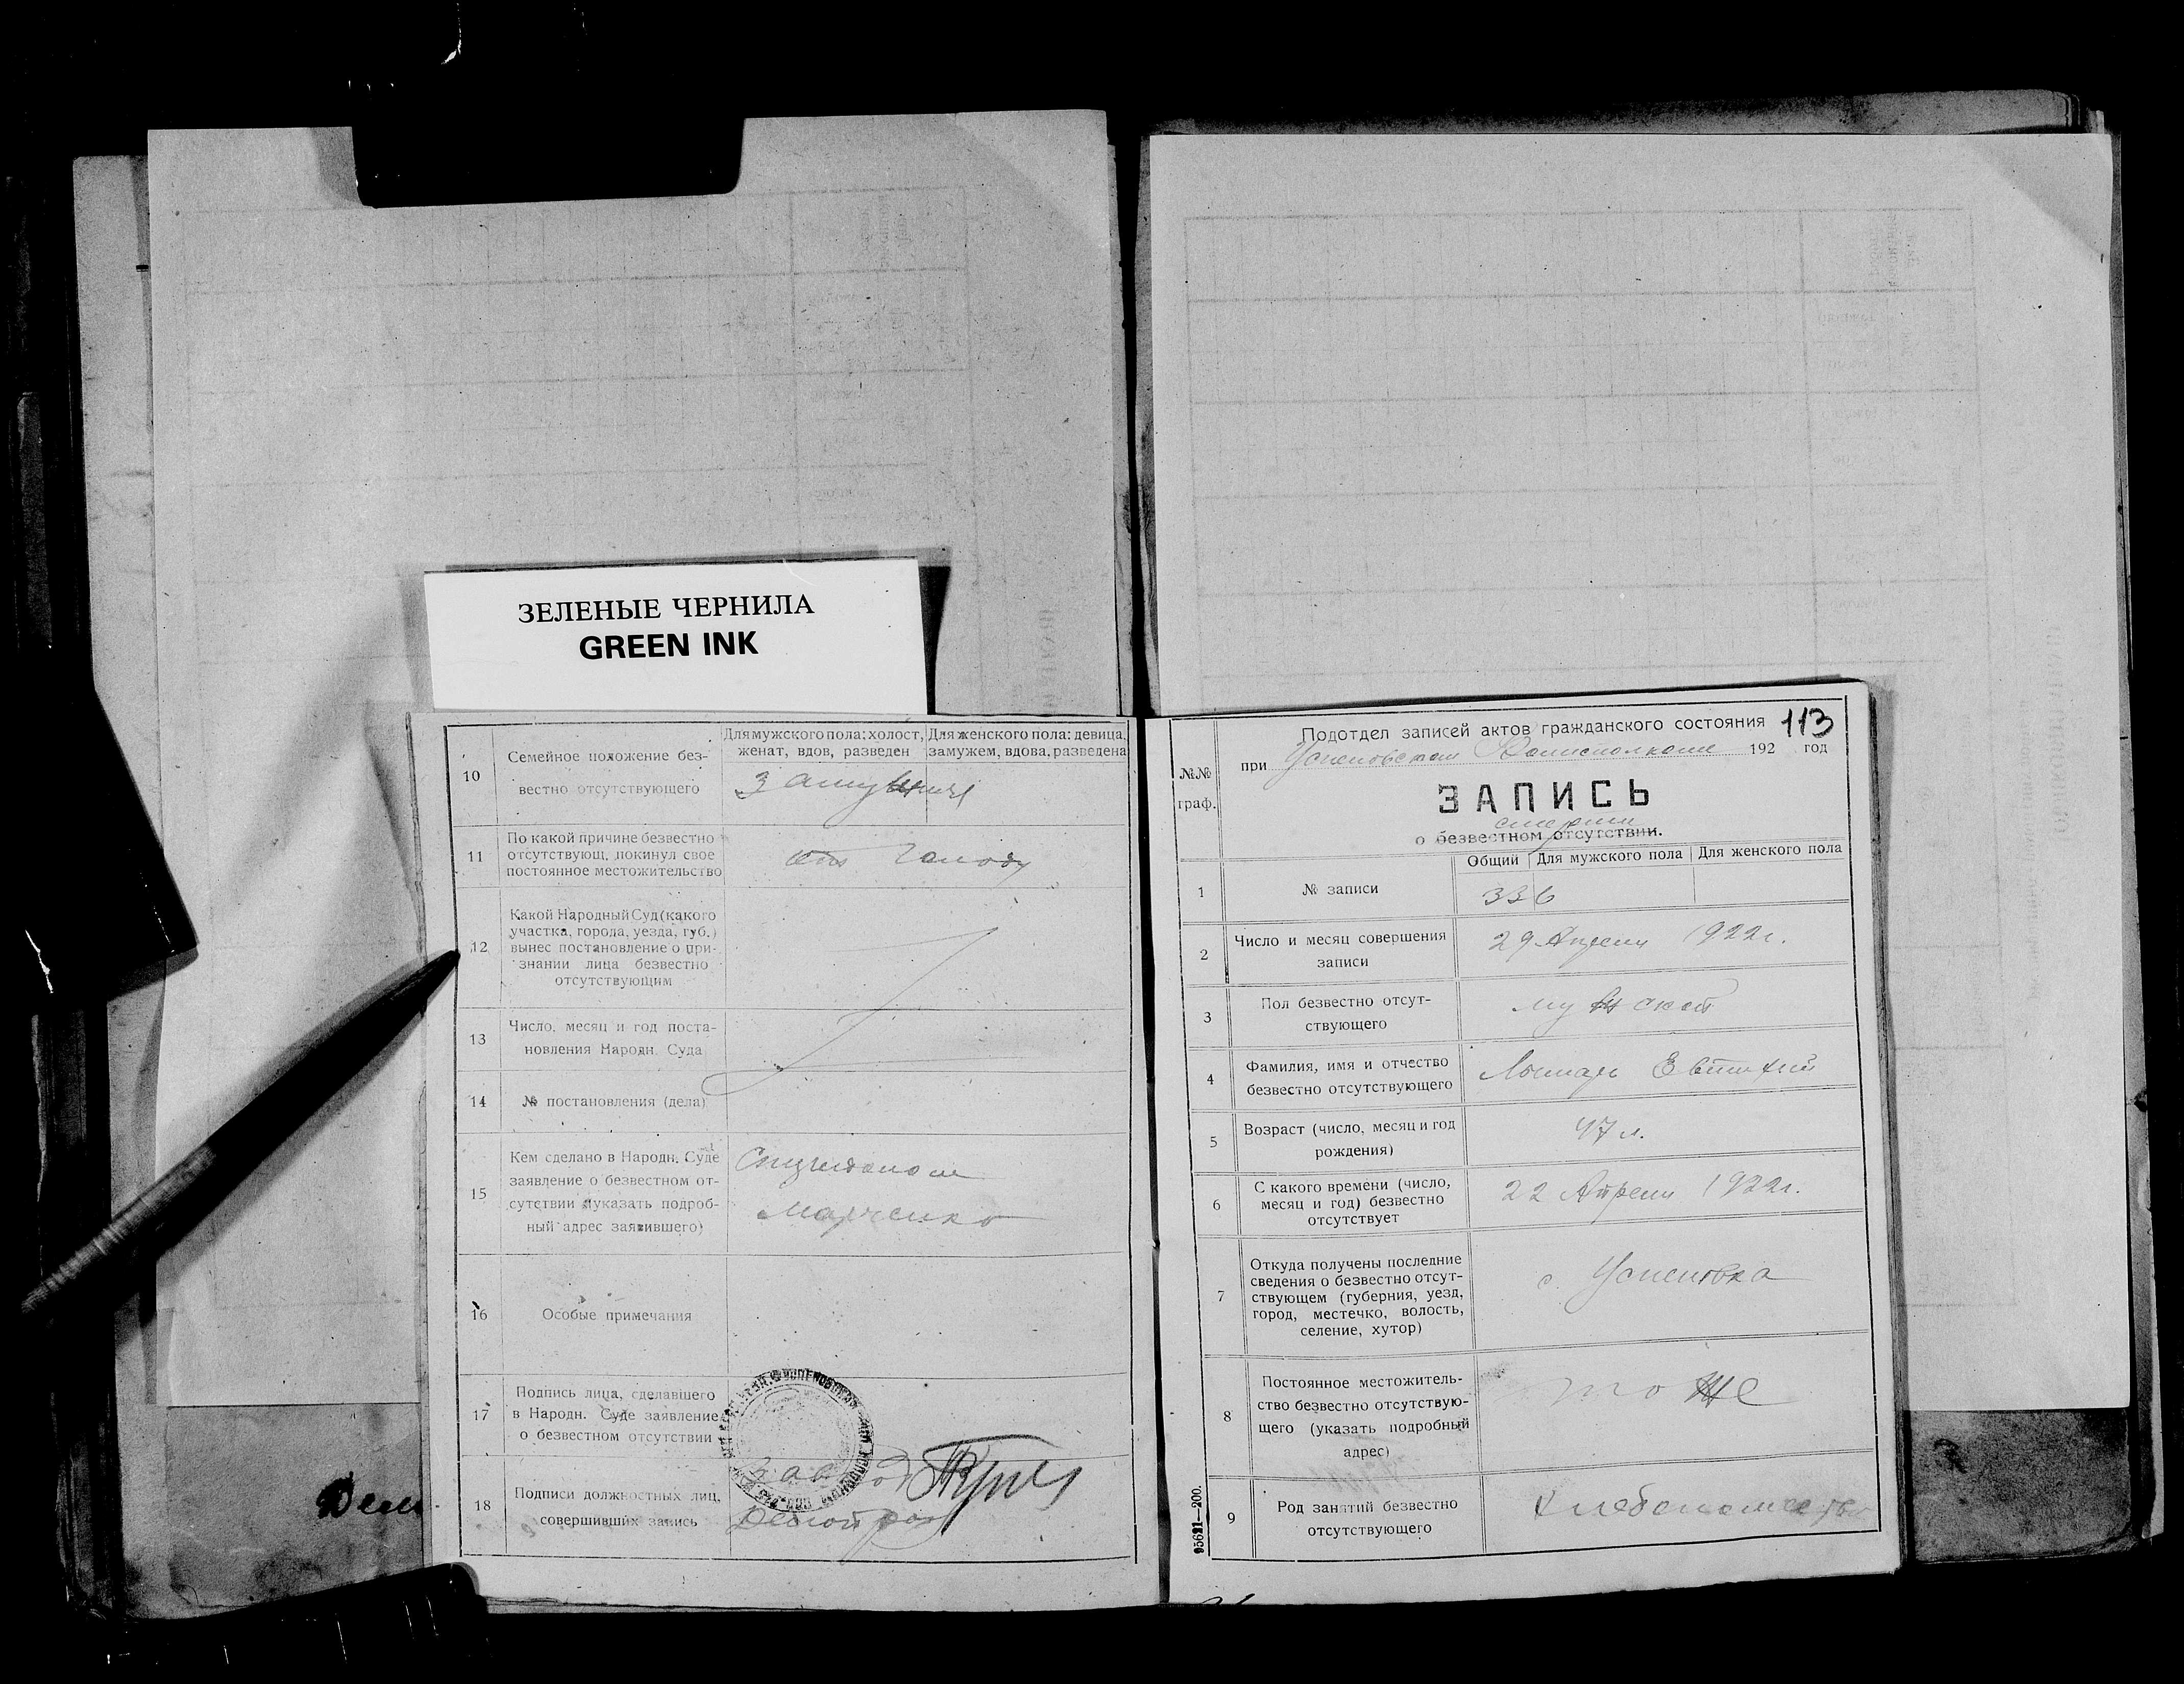 ЗЕЛЕНЫЕ ЧЕРНИЛА
GREEN INK
10
Семейное положение без-
вестно отсутствующего
Для мужского пола: холост,
женат, вдов, разведен
Для женского пола: девица,
замужем, вдова, разведена
11
По какой причине безвестно
отсутствующ. покинул свое
постоянное местожительство
от голоду
12
Какой Народный Суд (какого
участка, города, уезда, губ.)
вынес постановление о при-
знании лица безвестно
отсутствующим
13
Число, месяц и год поста-
новления Народн. Суда
14
№ постановления (дела)
15
Кем сделано в Народн. Суде
заявление о безвестном от-
сутствии (указать подроб-
ный адрес заявившего)
Марченко
16
Особые примечания
17
Подпись лица, сделавшего
в Народн. Суде заявление
о безвестном отсутствии
18
Подписи должностных лиц,
совершивших запись
Зав
Подотдел записей актов гражданского состояния
113
при Успеновском Волисполкоме 192 год
№№
граф.
ЗАПИСЬ
смерти
о безвестном отсутствии.
Общий
Для мужского пола
Для женского пола
1
№ записи
336
2
Число и месяц совершения
записи
29 Апреля 1922 г.
3
Пол безвестно отсут-
ствующего
мужской
4
Фамилия, имя и отчество
безвестно отсутствующего
Евтихий
5
Возраст (число, месяц и год
рождения)
47 л.
6
С какого времени (число,
месяц и год) безвестно
отсутствует
22 Апреля 1922 г.
7
Откуда получены последние
сведения о безвестно отсут-
ствующем (губерния, уезд,
город, местечко, волость,
селение, хутор)
с. Успеновка
8
Постоянное местожитель-
ство безвестно отсутствую-
щего (указать подробный
адрес)
тоже
9
Род занятий безвестно
отсутствующего
95621—200.